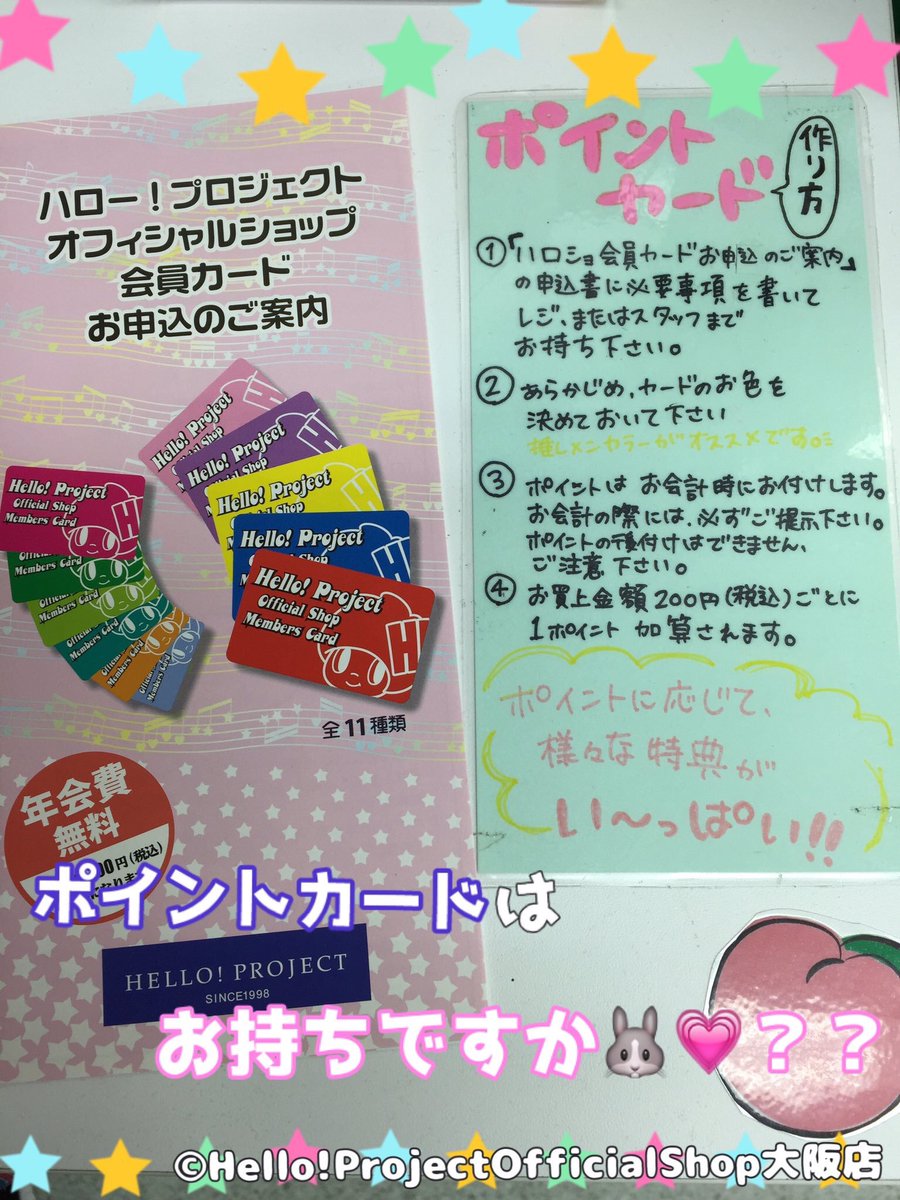 ハロー！プロジェクト
オフィシャルショップ
会員カード
お申込のご案内
Hello! Project
Official Shop
Members Card
Hello! Project
Official Shop
Hello! Project
Hello! Project
Official Shop
Hello! Project
Official Shop
Members Card
Hello! Project
Official Shop
Members Card
Members Card
全11種類
年会費
無料
00円(税込)
HELLO! PROJECT
SINCE1998
ポイント
カード
作り方
①「ハロショ会員カードお申込のご案内」
の申込書に必要事項を書いて
レジ、またはスタッフまで
お持ち下さい。
② あらかじめ、カードのお色を
決めておいて下さい
推しメンカラーがオススメです。
③ ポイントは お会計時にお付けします。
お会計の際には、必ずご提示下さい。
ポイントの後付けはできません、
ご注意 下さい。
④ お買上金額200円(税込)ごとに
1ポイント 加算されます。
ポイントに応じて、
様々な特典が
い〜っぱい!!
ポイントカードは
お持ちですか🐰💗？？
©Hello!ProjectOfficialShop大阪店